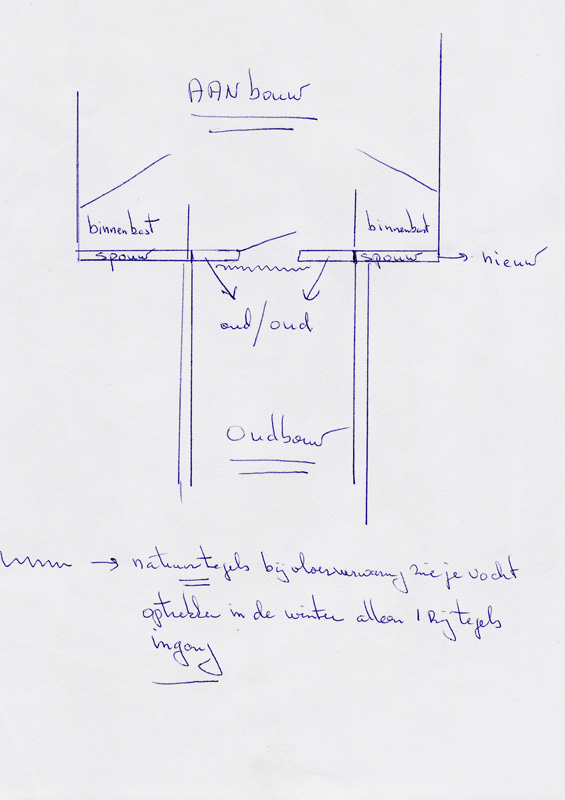 AANbouw
binnenbast
binnenbast
spouw
spouw
nieuw
oud/oud
Oudbouw
natuurtegels bij vloerverwarming zie je vocht
optrekken in de winter alleen 1 rij tegels
ingang